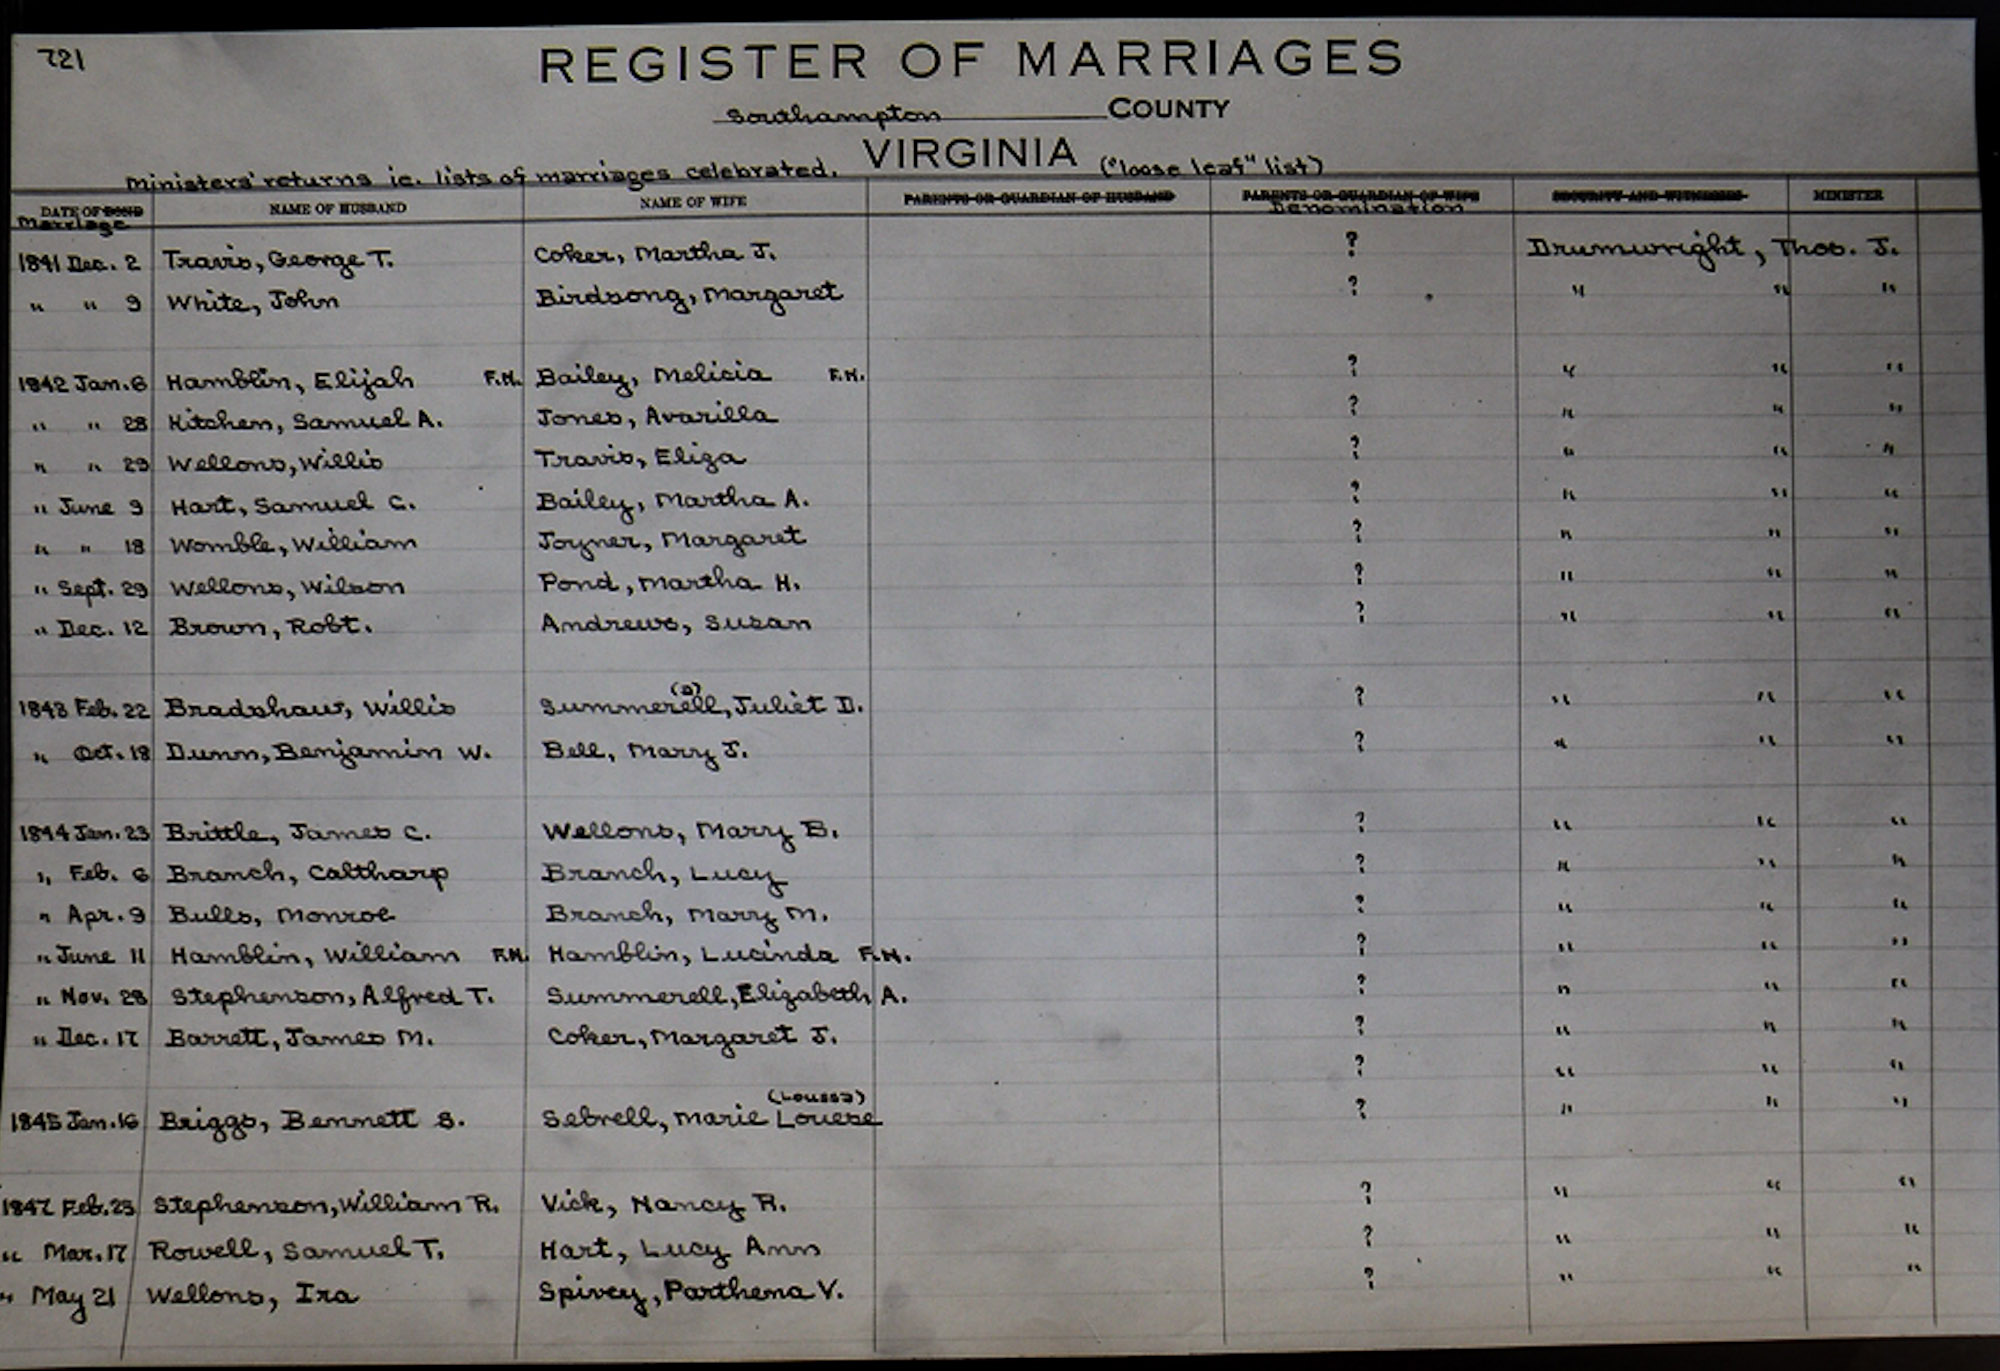 721
REGISTER OF MARRIAGES
Southampton COUNTY
VIRGINIA
Ministers' returns ie. lists of marriages celebrated. ("loose leaf" list)
DATE OF BOND NAME OF HUSBAND NAME OF WIFE PARENTS OR GUARDIAN OF HUSBAND PARENTS OR GUARDIAN OF WIFE SECURITY AND WITNESSES MINISTER
Marriage Denomination
1841 Dec. 2 Travis, George T. Coker, Martha J. ? Drumwright, Thos. J.
" " 9 White, John Birdsong, Margaret ? " " "
1842 Jan. 6 Hamblin, Elijah F.N. Bailey, Melicia F.N. ? " " "
" " 28 Kitchen, Samuel A. Jones, Avarilla ? " " "
" " 29 Wellons, Willis Travis, Eliza ? " " "
" June 9 Hart, Samuel C. Bailey, Martha A. ? " " "
" " 18 Womble, William Joyner, Margaret ? " " "
" Sept. 29 Wellons, Wilson Pond, Martha H. ? " " "
" Dec. 12 Brown, Robt. Andrews, Susan ? " " "
(a)
1843 Feb. 22 Bradshaw, Willis Summerell, Juliet D. ? " " "
" Oct. 18 Dunn, Benjamin W. Bell, Mary J. ? " " "
1844 Jan. 23 Brittle, James C. Wellons, Mary B. ? " " "
" Feb. 6 Branch, Caltharp Branch, Lucy ? " " "
" Apr. 9 Bulls, Monroe Branch, Mary M. ? " " "
" June 11 Hamblin, William F.N. Hamblin, Lucinda F.N. ? " " "
" Nov. 28 Stephenson, Alfred T. Summerell, Elizabeth A. ? " " "
" Dec. 17 Barrett, James M. Coker, Margaret J. ? " " "
? " " "
(Loussa)
1845 Jan. 16 Briggs, Bennett S. Sebrell, Marie Louese ? " " "
1847 Feb. 25 Stephenson, William R. Vick, Nancy R. ? " " "
" Mar. 17 Rowell, Samuel T. Hart, Lucy Ann ? " " "
" May 21 Wellons, Ira Spivey, Parthena V. ? " " "